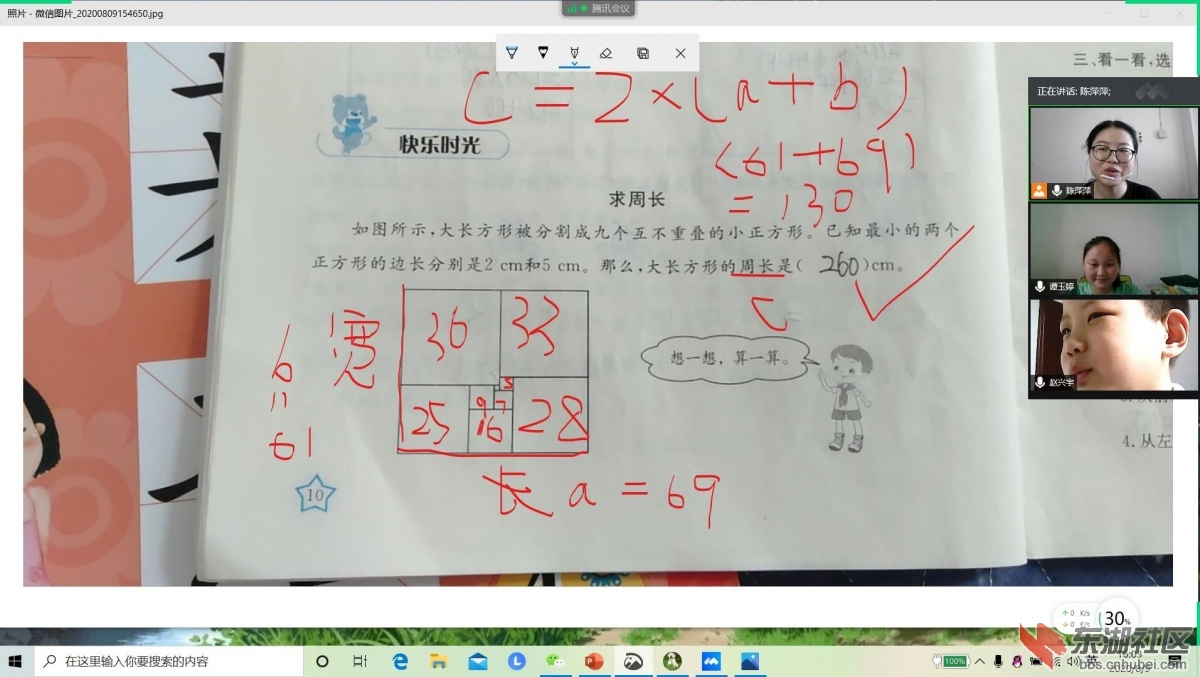 照片 - 微信图片_20200809154650.jpg
腾讯会议
C = 2 × (a + b)
(61 + 69)
= 130
三、看一看，选
正在讲话: 陈萍萍;
陈萍萍
谭玉婷
赵兴宇
快乐时光
求周长
如图所示，大长方形被分割成九个互不重叠的小正方形。已知最小的两个
正方形的边长分别是2 cm和5 cm。那么，大长方形的周长是( 260 )cm。
C
宽
b
=
61
36 33
5
9 7
25 16 28
想一想，算一算。
长 a = 69
10
4. 从左
0 K/s
0 K/s
30%
在这里输入你要搜索的内容
100%
英
东湖社区
bbs.cnhubei.com